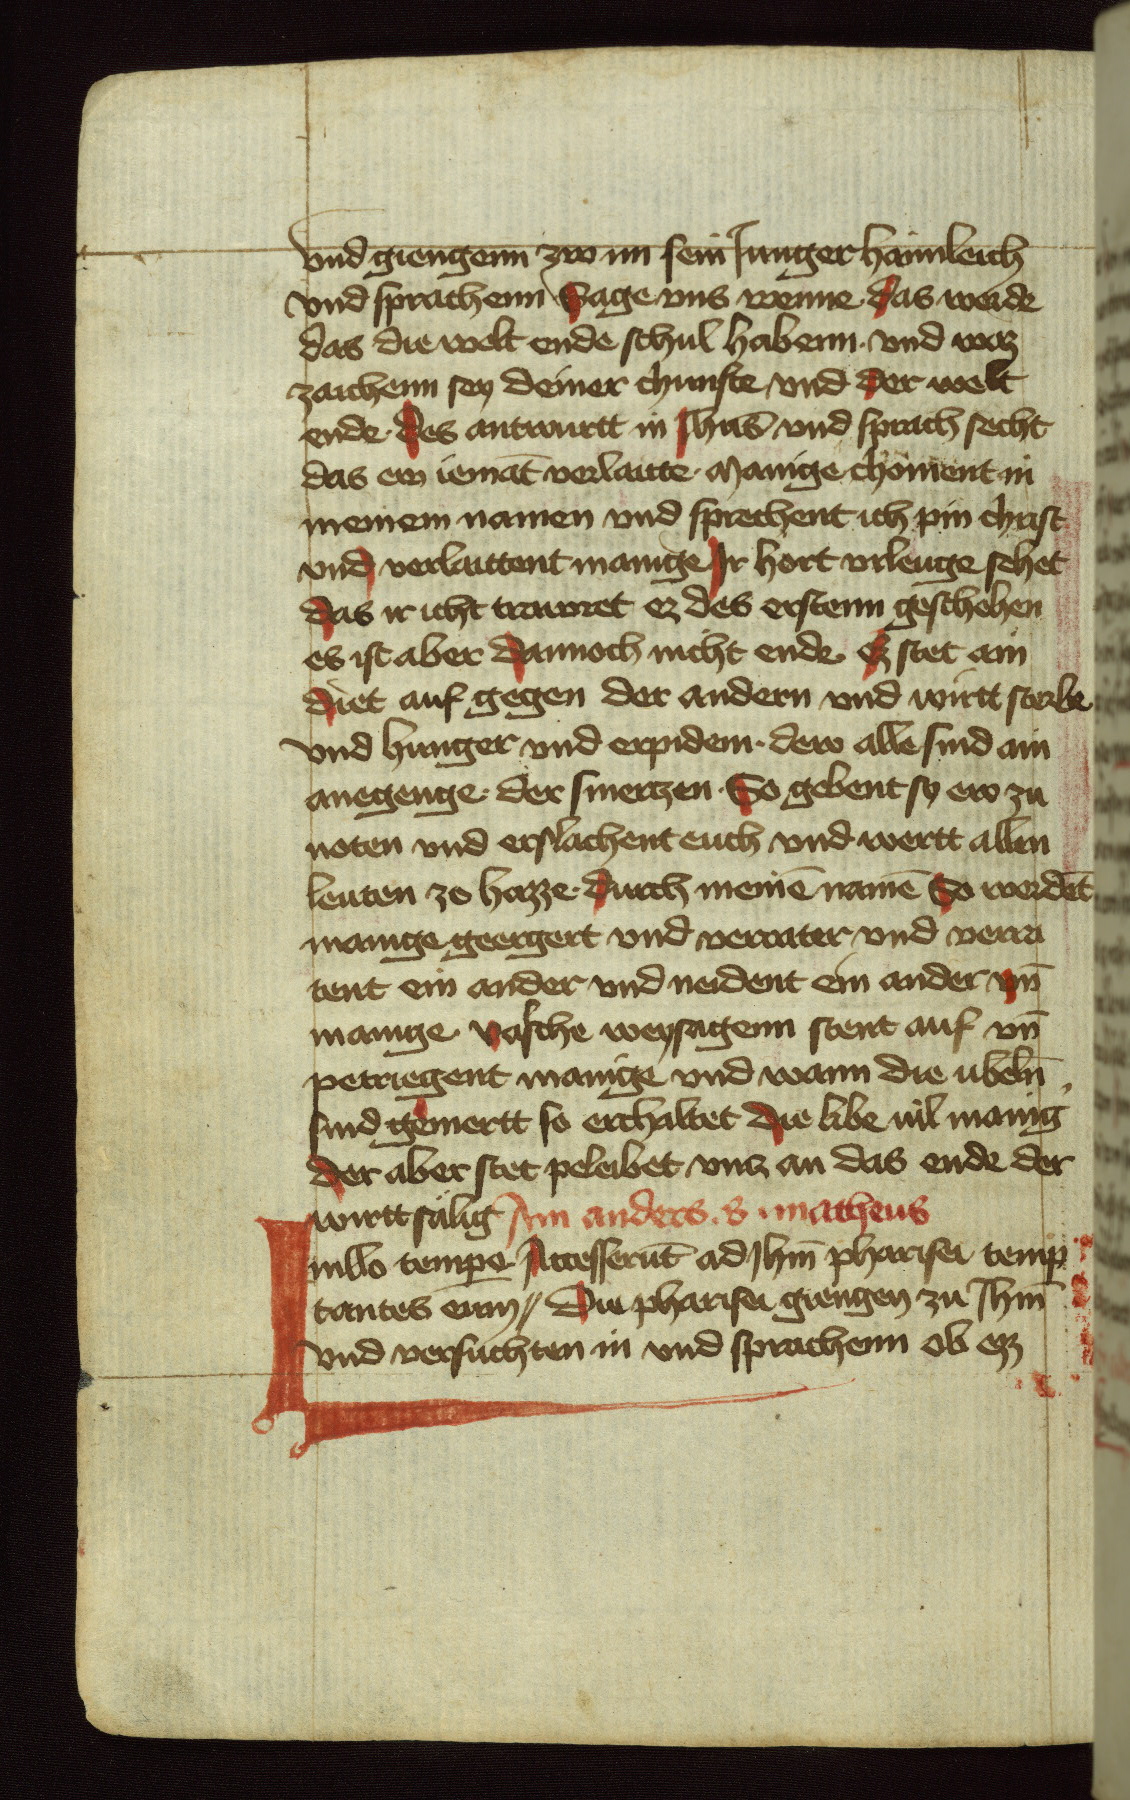 vnd giengenn zw im sein Junger haimleich
vnd sprachenn Sage vns wenne das werde
das die welt ende schul habenn. vnd waz
zaichenn sey deiner chunfte vnd der welt
ende. des antwurtt in Jhus̄ vnd sprach secht
das ew iemāt verlaite. Manige choment in
meinem namen vnd sprechent ich pin christ
vnd verlaittent manige Ir hort vrleuge sehet
das ir icht trawret ez des erstenn geschehen
es ist aber dannoch nicht ende. Ez stet ain
diet auf gegen der andern vnd wirtt sterbe
vnd hunger vnd erpidem. dew alle sind ain
anegenge. der smertzen. So gebent sy ew zu
noten vnd erslachent euch vnd wertt allen
leuten ze hazze. durch meinē namē So werdēt
manige geergert vnd verrater vnd verra
tent ein ander vnd neident ein ander vn̄
manige. valsche weysagenn stent auf vn̄
petriegent manige vnd wann die ubeln̄
sind gemertt so erchaltet die libe uil manig
der aber stet peleibet vntz an das ende der
wirtt sälig Ain anders. S. matheus
In illo tempe Accesserūt ad Jhm̄ pharisei temp
tantes eum // Die pharisei giengen zu Jhm̄
vnd versuchten in vnd sprachenn ob ez